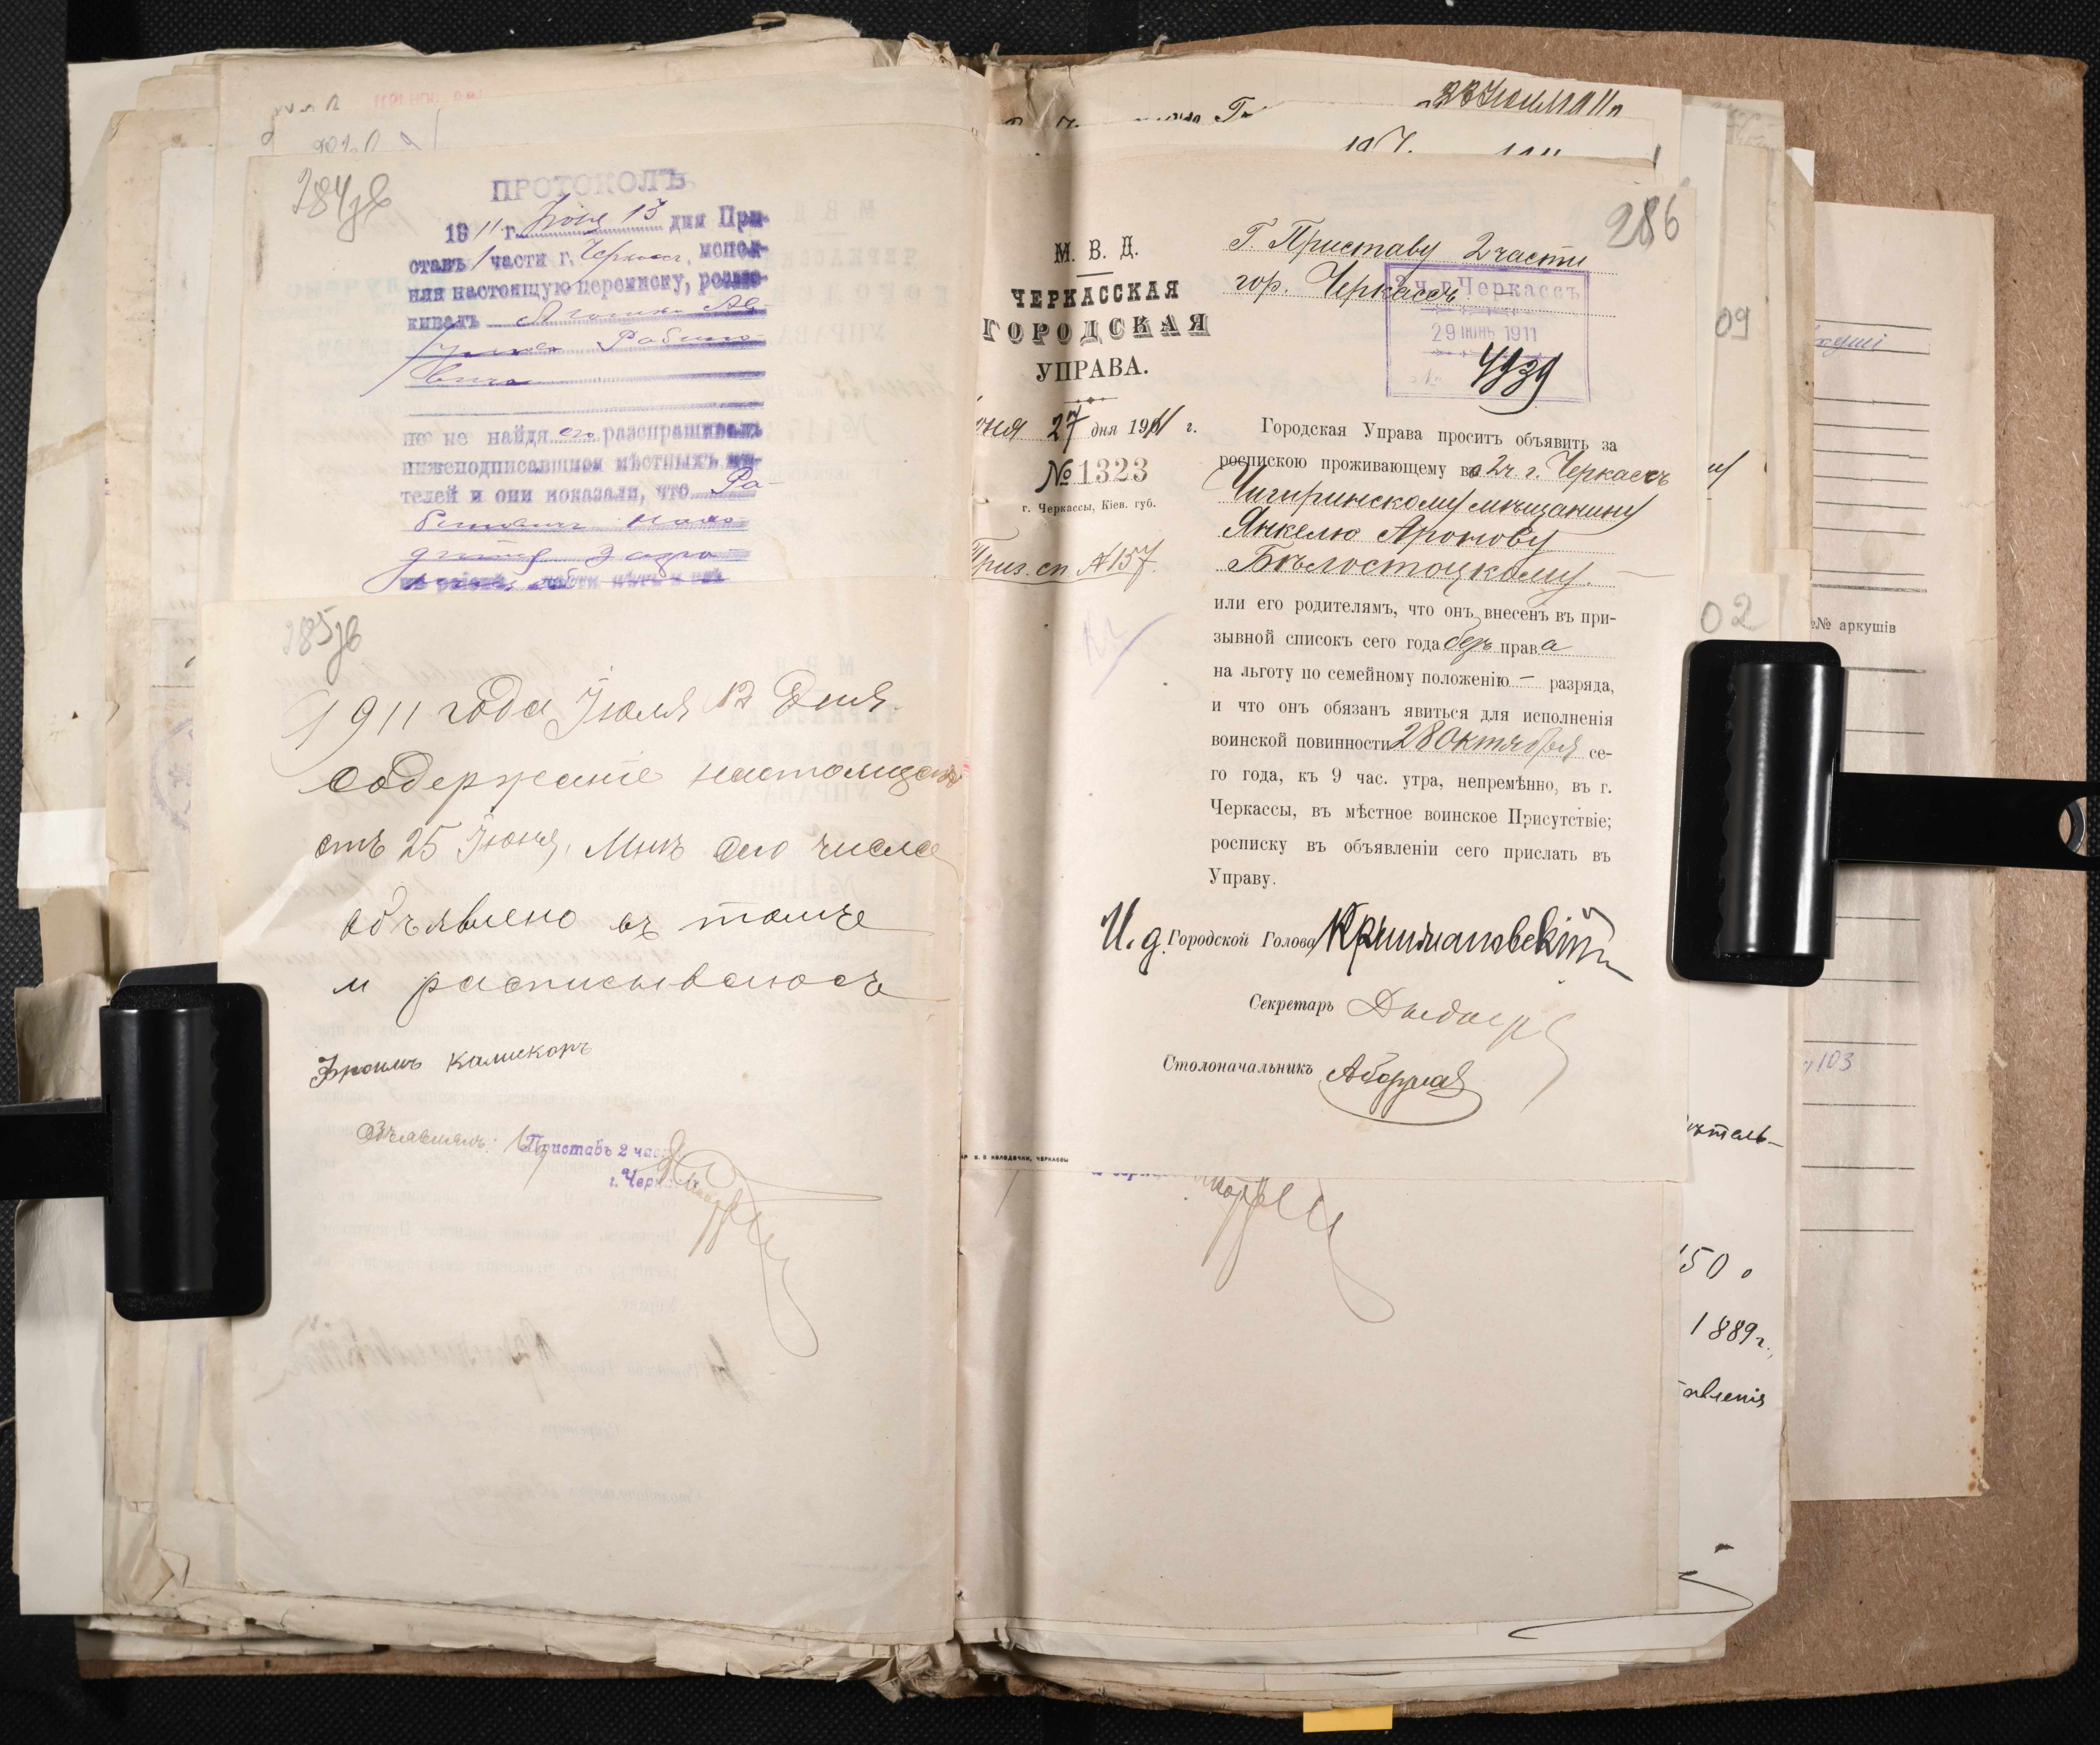 284зв
ПРОТОКОЛЪ
1911 г. Іюня 13 дня При-
ставъ 1 части г. Черкассъ, испол-
няя настоящую переписку, розыс-
кивалъ
Рабино-
вича
но не найдя его разспрашивалъ
нижеподписавшихся мѣстныхъ жи-
телей и они показали, что Ра-
бинович
285зв
1911 года Іюля 12 дня.
содержаніе настоящаго
отъ 25 Іюня, Мнѣ сего числа
объявлено въ томъ
и расписываюсь
Объявилъ:
Приставъ 2 части
г. Черкассъ
286
М. В. Д.
ЧЕРКАССКАЯ
ГОРОДСКАЯ
УПРАВА.
юня 27 дня 1911 г.
№ 1323
г. Черкассы, Кіев. губ.
Приз. сп. №157.
Г. Приставу 2 части
гор. Черкассъ
2 ч. г. Черкассъ
29 ІЮНЬ 1911
4939
Городская Управа проситъ объявить за
роспискою проживающему во 2 ч. г. Черкассъ
Чигиринскому мѣщанину
Янкелю Аронову
Бѣлостоцкому.
или его родителямъ, что онъ внесенъ въ при-
зывной списокъ сего года безъ права
на льготу по семейному положенію – разряда,
и что онъ обязанъ явиться для исполненія
воинской повинности 28 октября се-
го года, къ 9 час. утра, непремѣнно, въ г.
Черкассы, въ мѣстное воинское Присутствіе;
росписку въ объявленіи сего прислать въ
Управу.
И. д. Городской Голова
Секретарь
Столоначальникъ
09
02
№№ аркушів
103
1889 г.,